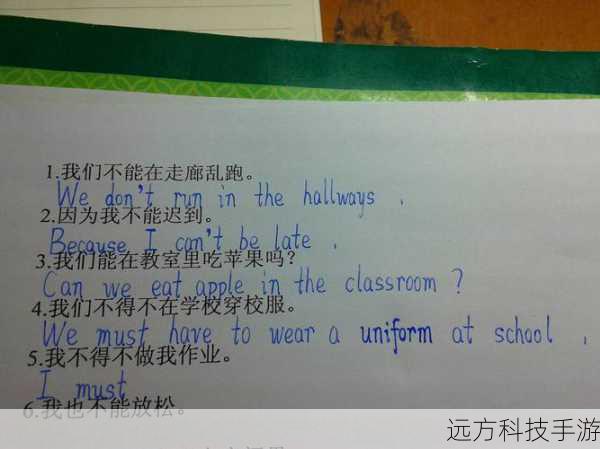 1.我们不能在走廊乱跑。
We don't run in the hallways .
2.因为我不能迟到。
Because I can't be late .
3.我们能在教室里吃苹果吗?
Can we eat apple in the classroom ?
4.我们不得不在学校穿校服。
We must have to wear a uniform at school .
5.我不得不做我作业。
I must
6.我也不能放松。
远方科技手游